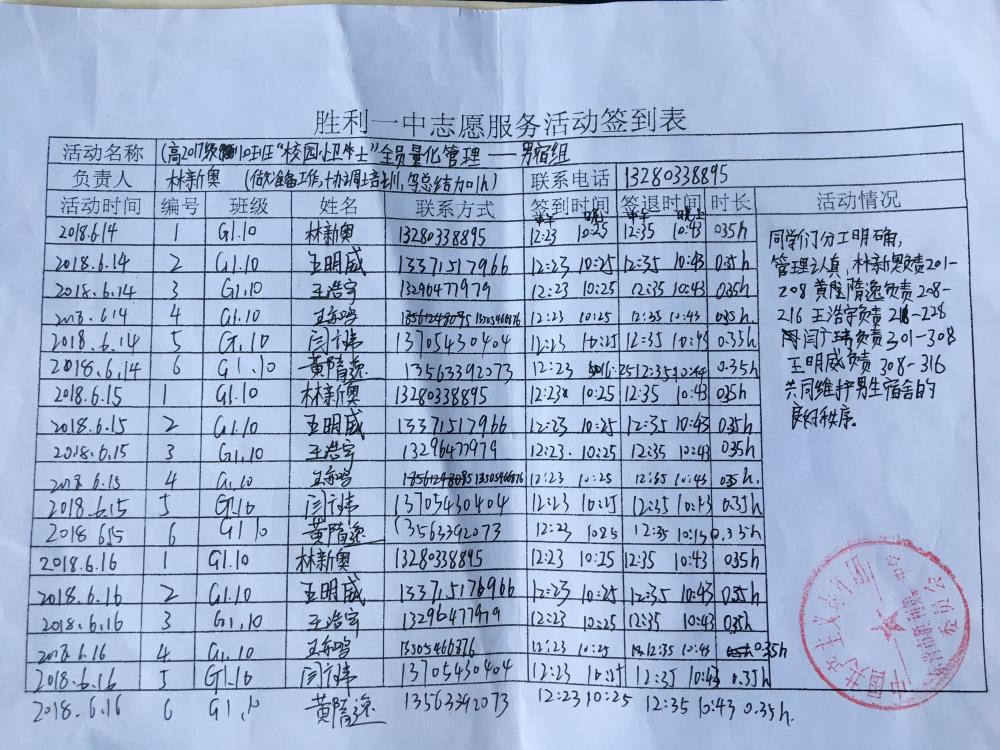 胜利一中志愿服务活动签到表
活动名称 (高2017级10班班"校园小卫士"全员量化管理——男宿组
负责人 林新奥 (做准备工作,协调上培训,写总结加1h) 联系电话 13280338895
活动时间 编号 班级 姓名 联系方式 签到时间 签退时间 时长 活动情况
中午 晚上 中午 晚上
2018.6.14 1 G1.10 林新奥 13280338895 12:23 10:25 12:35 10:43 0.35h
2018.6.14 2 G1.10 王明威 13371517966 12:23 10:25 12:35 10:43 0.35h
2018.6.14 3 G1.10 王浩宇 13296477979 12:23 10:25 12:35 10:43 0.35h
2018.6.14 4 G1.10 13505466876 12:23 10:25 12:35 10:43 0.35h
2018.6.14 5 G1.10 闫广玮 13705430404 12:23 10:25 12:35 10:43 0.35h
2018.6.14 6 G1.10 黄隋逸 13563392073 12:23 10:25 12:35 10:44 0.35h
2018.6.15 1 G1.10 林新奥 13280338895 12:23 10:25 12:35 10:43 0.35h
2018.6.15 2 G1.10 王明威 13371517966 12:23 10:25 12:35 10:43 0.35h
2018.6.15 3 G1.10 王浩宇 13296477979 12:23 10:25 12:35 10:43 0.35h
2018.6.15 4 G1.10 13505466876 12:23 10:25 12:35 10:43 0.35h.
2018.6.15 5 G1.10 闫广玮 13705430404 12:23 10:25 12:35 10:43 0.35h
2018 6.15 6 G1.10 黄隋逸 13563392073 12:23 10:25 12:35 10:15 0.35h
2018.6.16 1 G1.10 林新奥 13280338895 12:23 10:25 12:35 10:43 0.35h
2018.6.16 2 G1.10 王明威 133715176966 12:23 10:25 12:35 10:43 0.35h
2018.6.16 3 G1.10 王浩宇 13296477979 12:23 10:25 12:35 10:43 0.35h
2018.6.16 4 G1.10 13505466876 12:23 10:25 12:35 10:43 0.35h
2018.6.16 5 G1.10 闫广玮 13705430404 12:23 10:25 12:35 10:43 0.35h
2018.6.16 6 G1.10 黄隋逸 13563392073 12:23 10:25 12:35 10:43 0.35h.
同学们分工明确,
管理认真,林新奥负责201-
208 黄隋逸负责208-
216 王浩宇负责218-228
闫广玮负责301-308
王明威负责 308-316
共同维护男生宿舍的
良好秩序。
中国共产主义青年团
委员会